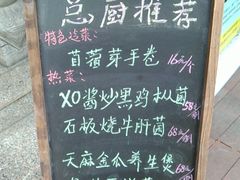 总厨推荐
特色冷菜:
苜蓿芽手卷 16元/个
热菜:
XO酱炒黑鸡枞菌 58元/例
石板烧牛肝菌 68元/例
天麻金瓜养生煲 68元/例